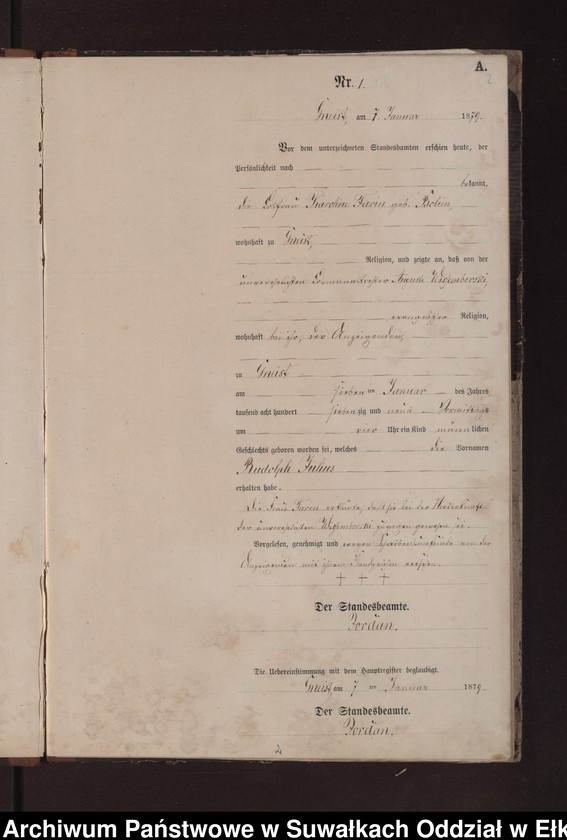 A.
2
Nr. 1.
Gneist, am 7. Januar 1879.
Vor dem unterzeichneten Standesbeamten erschien heute, der
Persönlichkeit nach
bekannt,
die Losfrau Karoline geb.
wohnhaft zu Gneist,
Religion, und zeigte an, daß von der
unverehelichten
evangelischer Religion,
wohnhaft bei ihr, der Anzeigenden,
zu Gneist
am sieben ten Januar des Jahres
tausend acht hundert sieben zig und neun Vormittags
um vier Uhr ein Kind männlichen
Geschlechts geboren worden sei, welches die Vornamen
Rudolph Julius
erhalten habe.
Die Frau erklärte, daß sie bei der Niederkunft
der unverehelichten zugegen gewesen sei.
Vorgelesen, genehmigt und wegen Schreibensunkunde von der
Anzeigenden mit ihrem Handzeichen versehen.
+ + +
Der Standesbeamte.
Jordan.
Die Uebereinstimmung mit dem Hauptregister beglaubigt.
Gneist, am 7 ten Januar 1879.
Der Standesbeamte.
Jordan.
2
Archiwum Państwowe w Suwałkach Oddział w Ełk